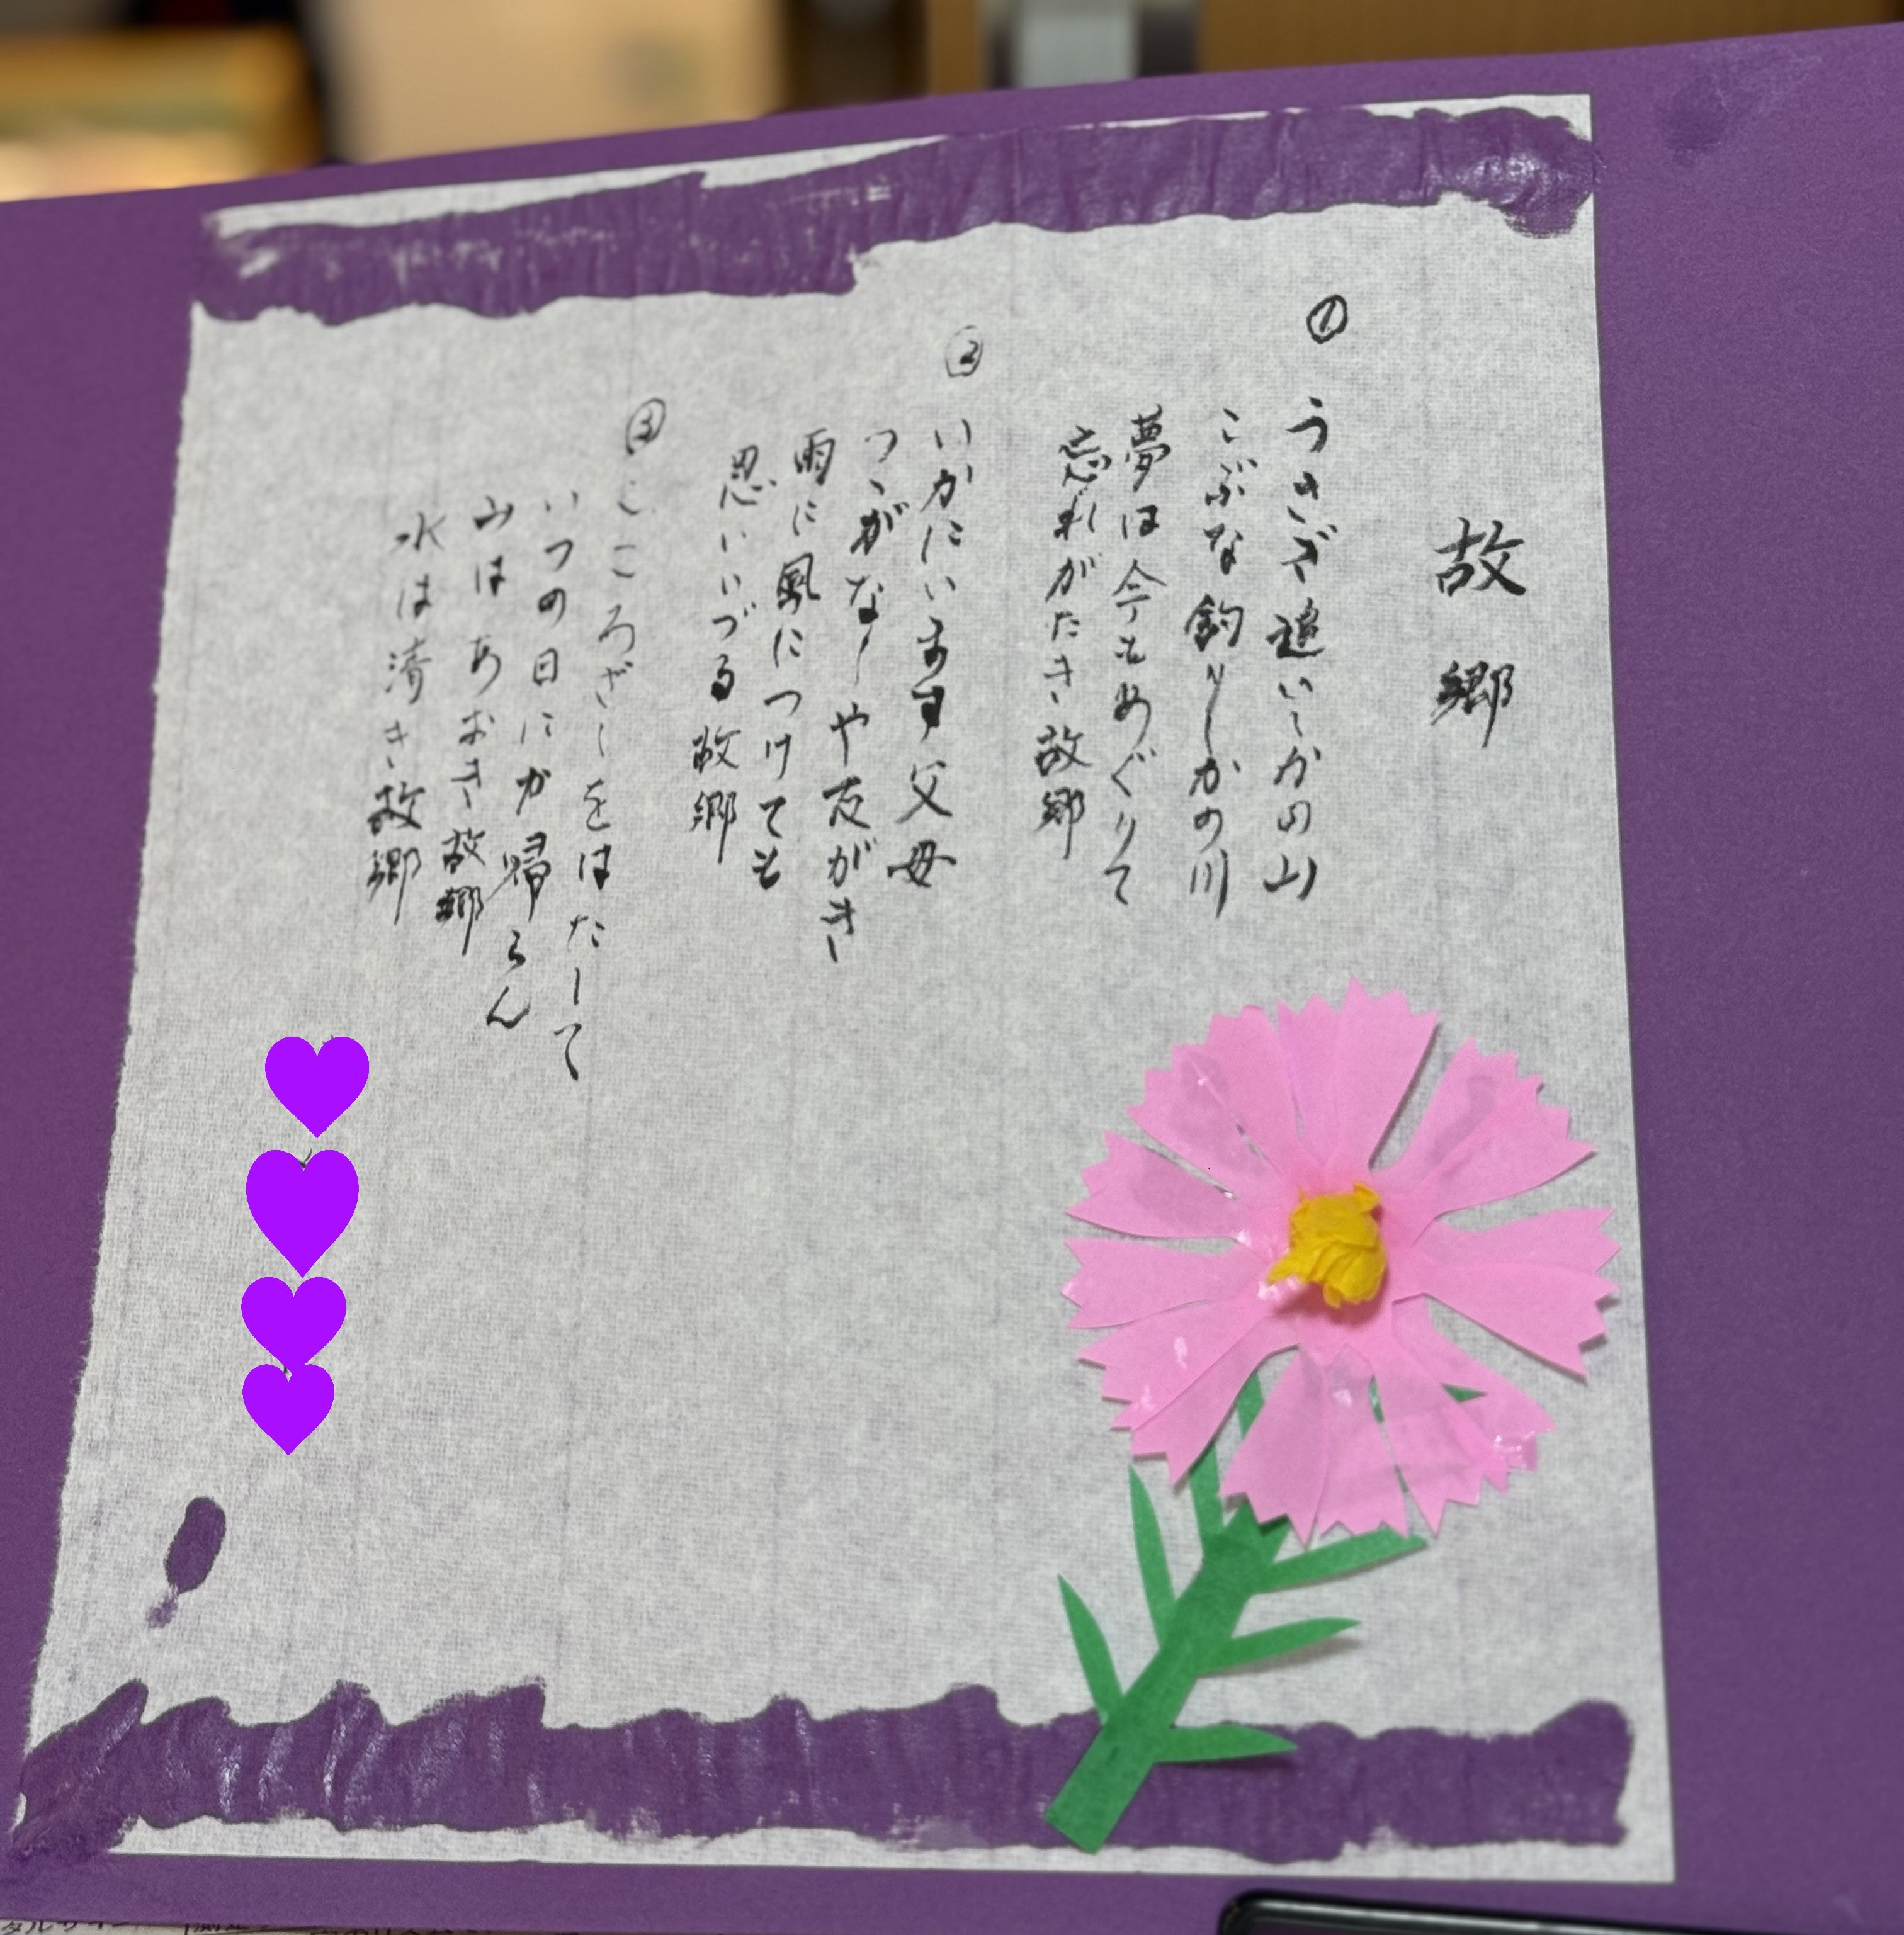 故郷
① うさぎ追いしかの山
こぶな釣りしかの川
夢は今もめぐりて
忘れがたき故郷
② いかにいます父母
つゝがなしや友がき
雨に風につけても
思いいづる故郷
③ こころざしをはたして
いつの日にか帰らん
山はあおき故郷
水は清き故郷